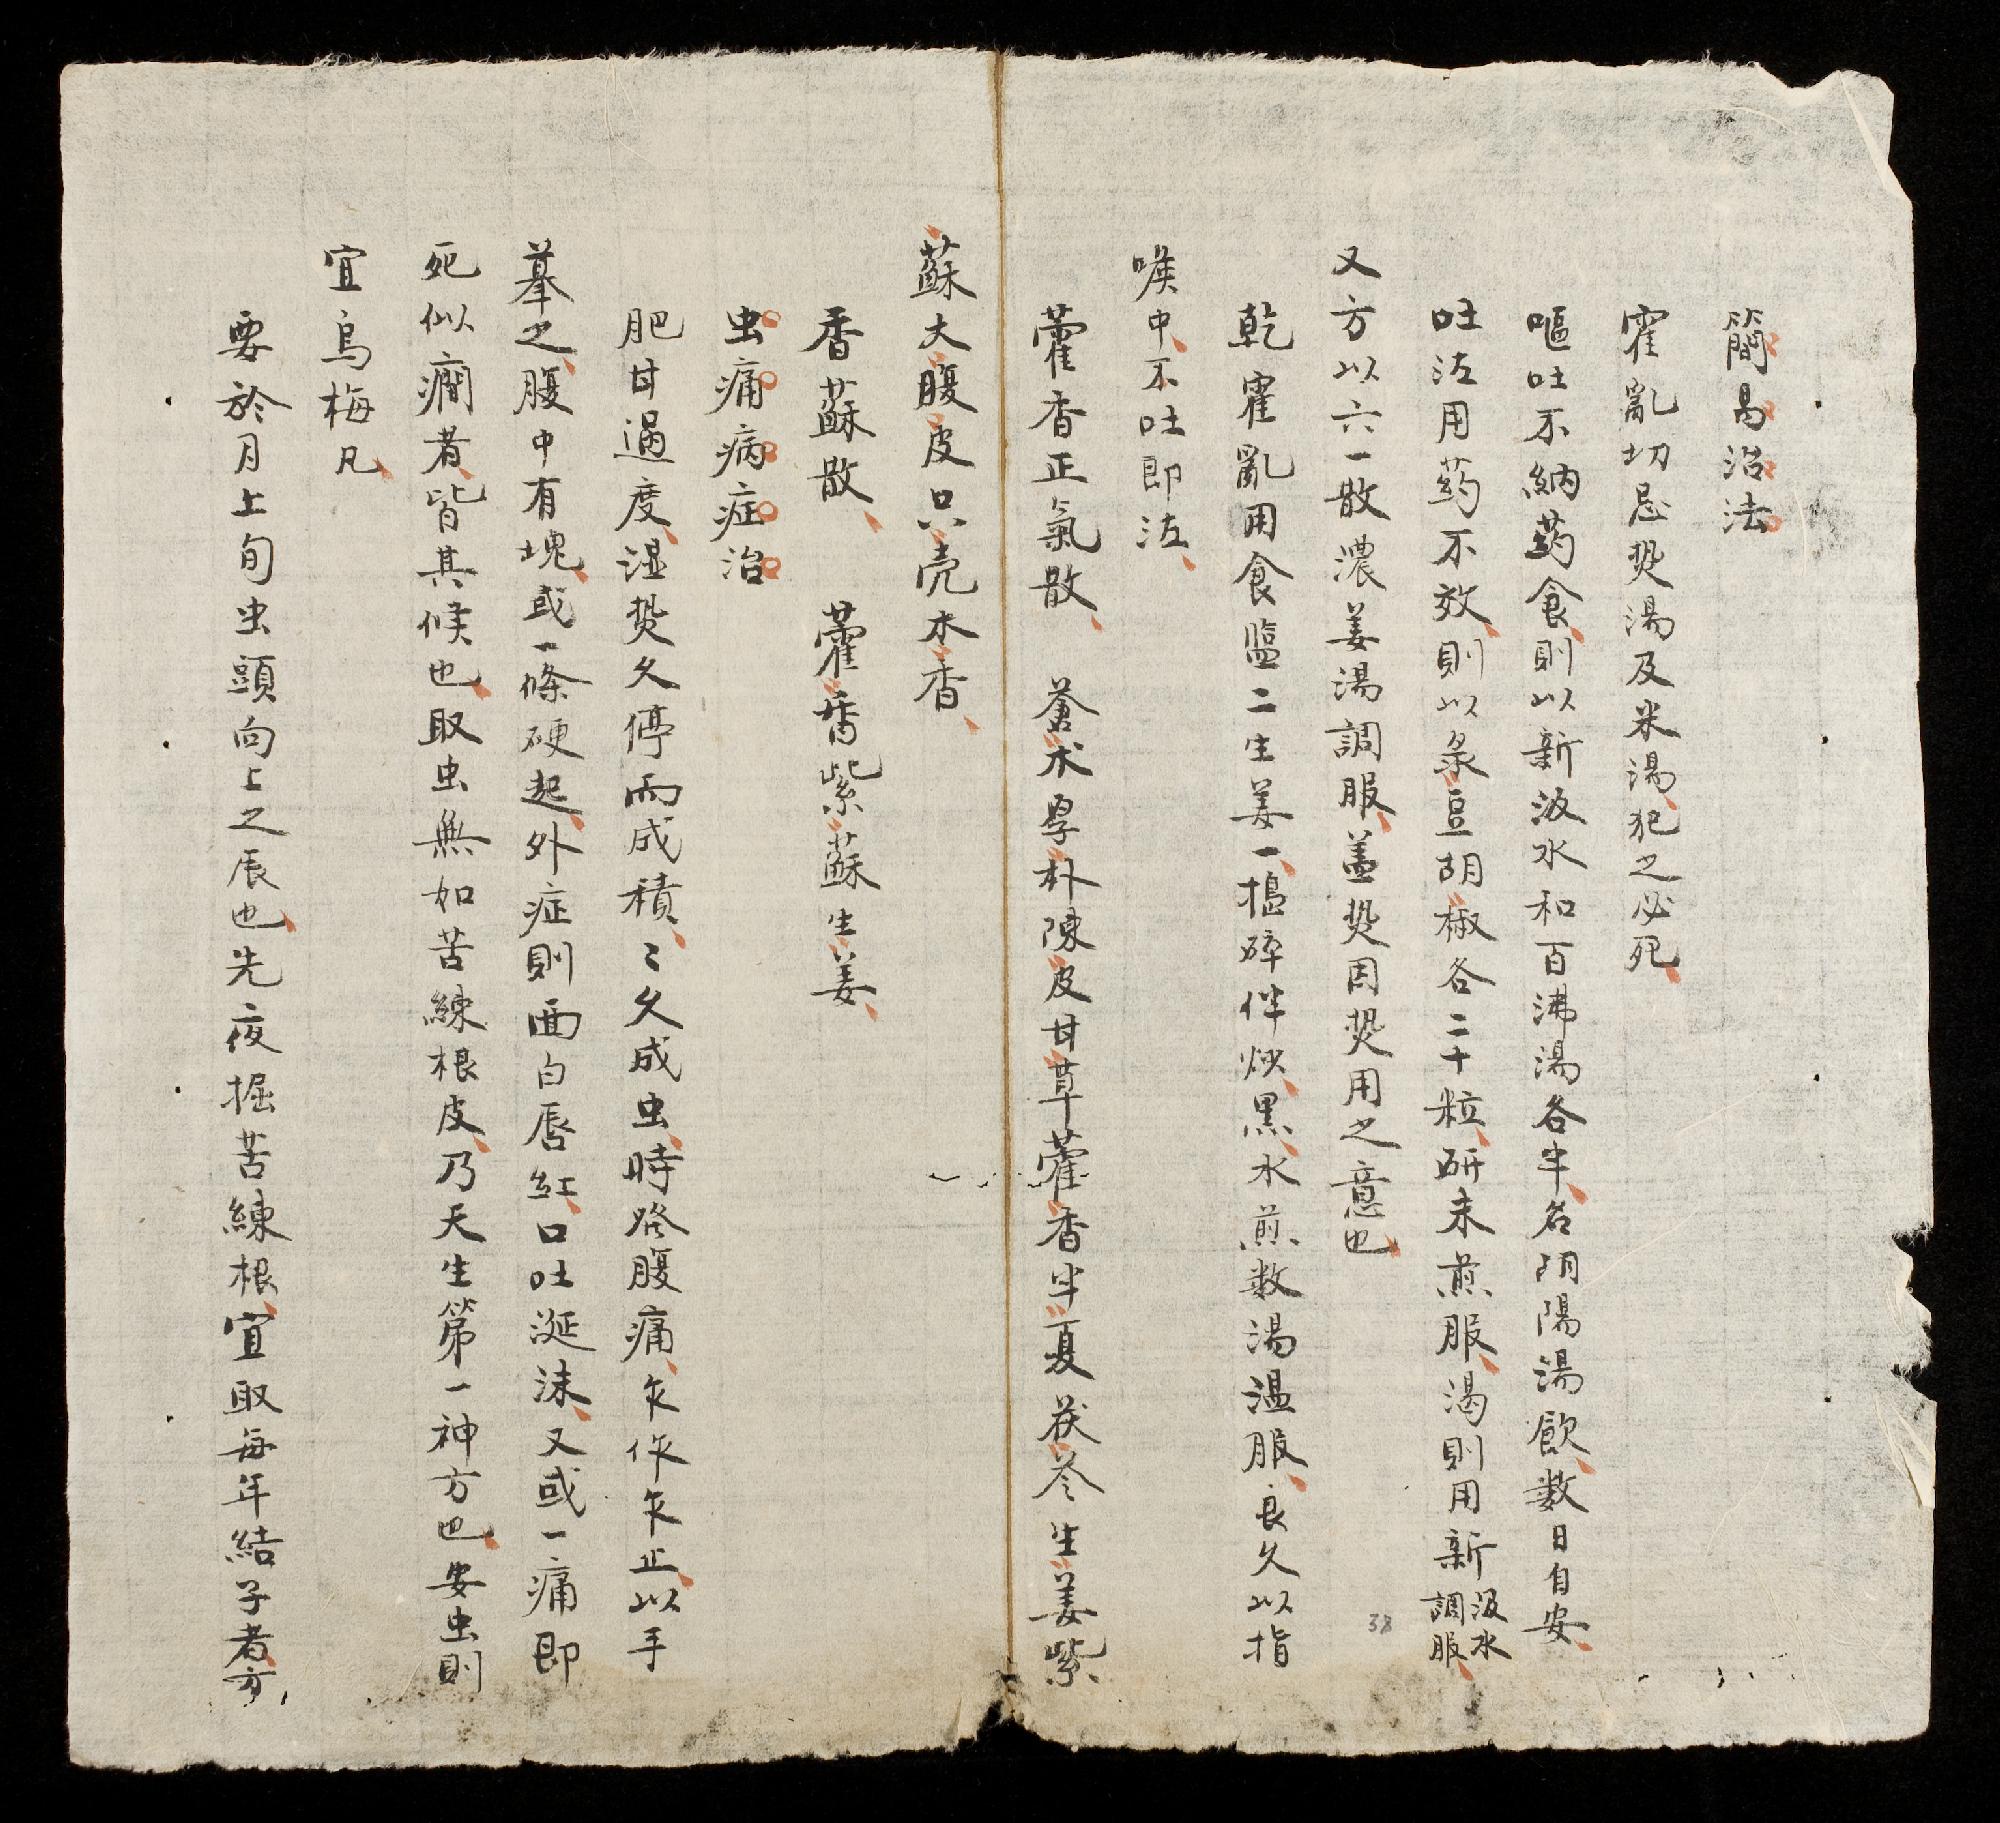 簡易治法
霍亂切忌热湯及米湯犯之必死
嘔吐不納药食則以新汲水和百沸湯各半名阴陽湯飲数日自安
吐泣用药不效則以彔豆胡椒各二十粒研末煎服渴則用新汲水調服
又方以六一散濃姜湯調服盖热因热用之意也
乾霍亂用食盐二生姜一搗碎伴炒黒水煎数湯温服良久以指
喉中不吐即泣
藿香正氣散 蒼朮厚朴陳皮甘草藿香半夏茯苓生姜紫
蘇大腹皮只壳木香
香蘇散 藿香紫蘇生姜
虫痛病症治
肥甘過度湿热久停而成積〻久成虫時咯腹痛乍作乍止以手
摹之腹中有塊或一條硬起外症則面白唇紅口吐涎沫又或一痛即
死似癎者皆其候也取虫無如苦練根皮乃天生第一神方也安虫則
宜烏梅凡
要於月上旬虫頭向上之辰也先夜掘苦練根宜取每年結子者方
38